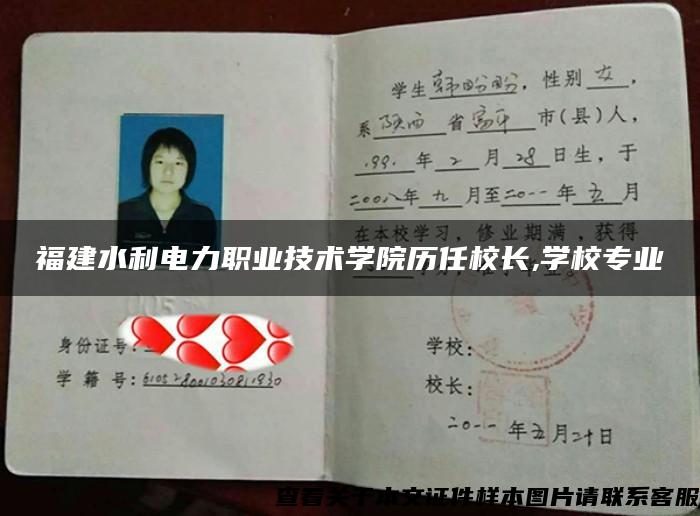 学生韩盼盼，性别女，
系陕西省富平市(县)人，
1991年2月28日生，于
二00八年九月至二0一一年五月
在本校学习，修业期满，获得
福建水利电力职业技术学院历任校长,学校专业
身份证号:
学籍号:
学校:
校长:
二0一一年五月二十日
查看关于本文证件样本图片请联系客服